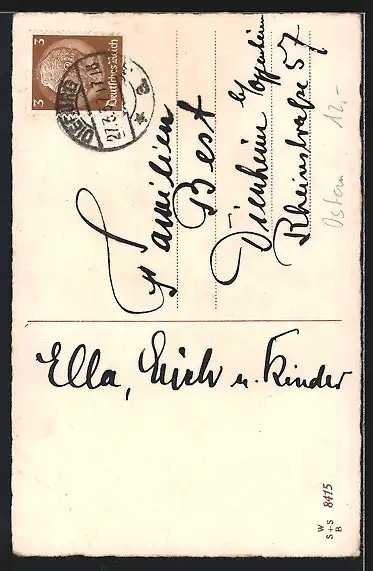 3 3
Deutsches Reich
DIEBURG
27.3.
17-18
* a
Familien
Best
Dienheim b/Oppenheim
Rheinstraße 57
Ostern 12,-
Ella, Erich u. Kinder
W
S+S 8415
B